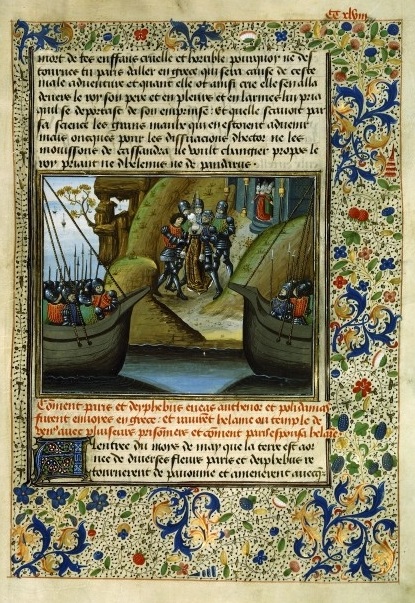 mort de tes enffans cruelle et horrible pourquoy ne de
tournes tu paris daller en grece qui sera cause de ceste
male adventure et quant elle ot ainsi crie elle sen alla
devers le roy son pere et en pleurs et en larmes luy pria
quil se deportast de son emprinse Et quelle scavoit par
sa science les grans maulx qui en estoient advenir
mais oncques pour les dissuacions dhector ne les
monissons de cassandra ne voult changier propos le
roy priant ne dhelenus ne de pandarus
Coment paris et deyphebus eneas anthenor et polidamas
furent envoies en grece et ravirent helaine ou temple de
venus avec pluiseurs prisoniers et coment paris espousa helaine
A lentree du moys de may que la terre est aor
nee de diverses fleurs paris et deyphebus re
tournerent de panonnie et amenerent avecq